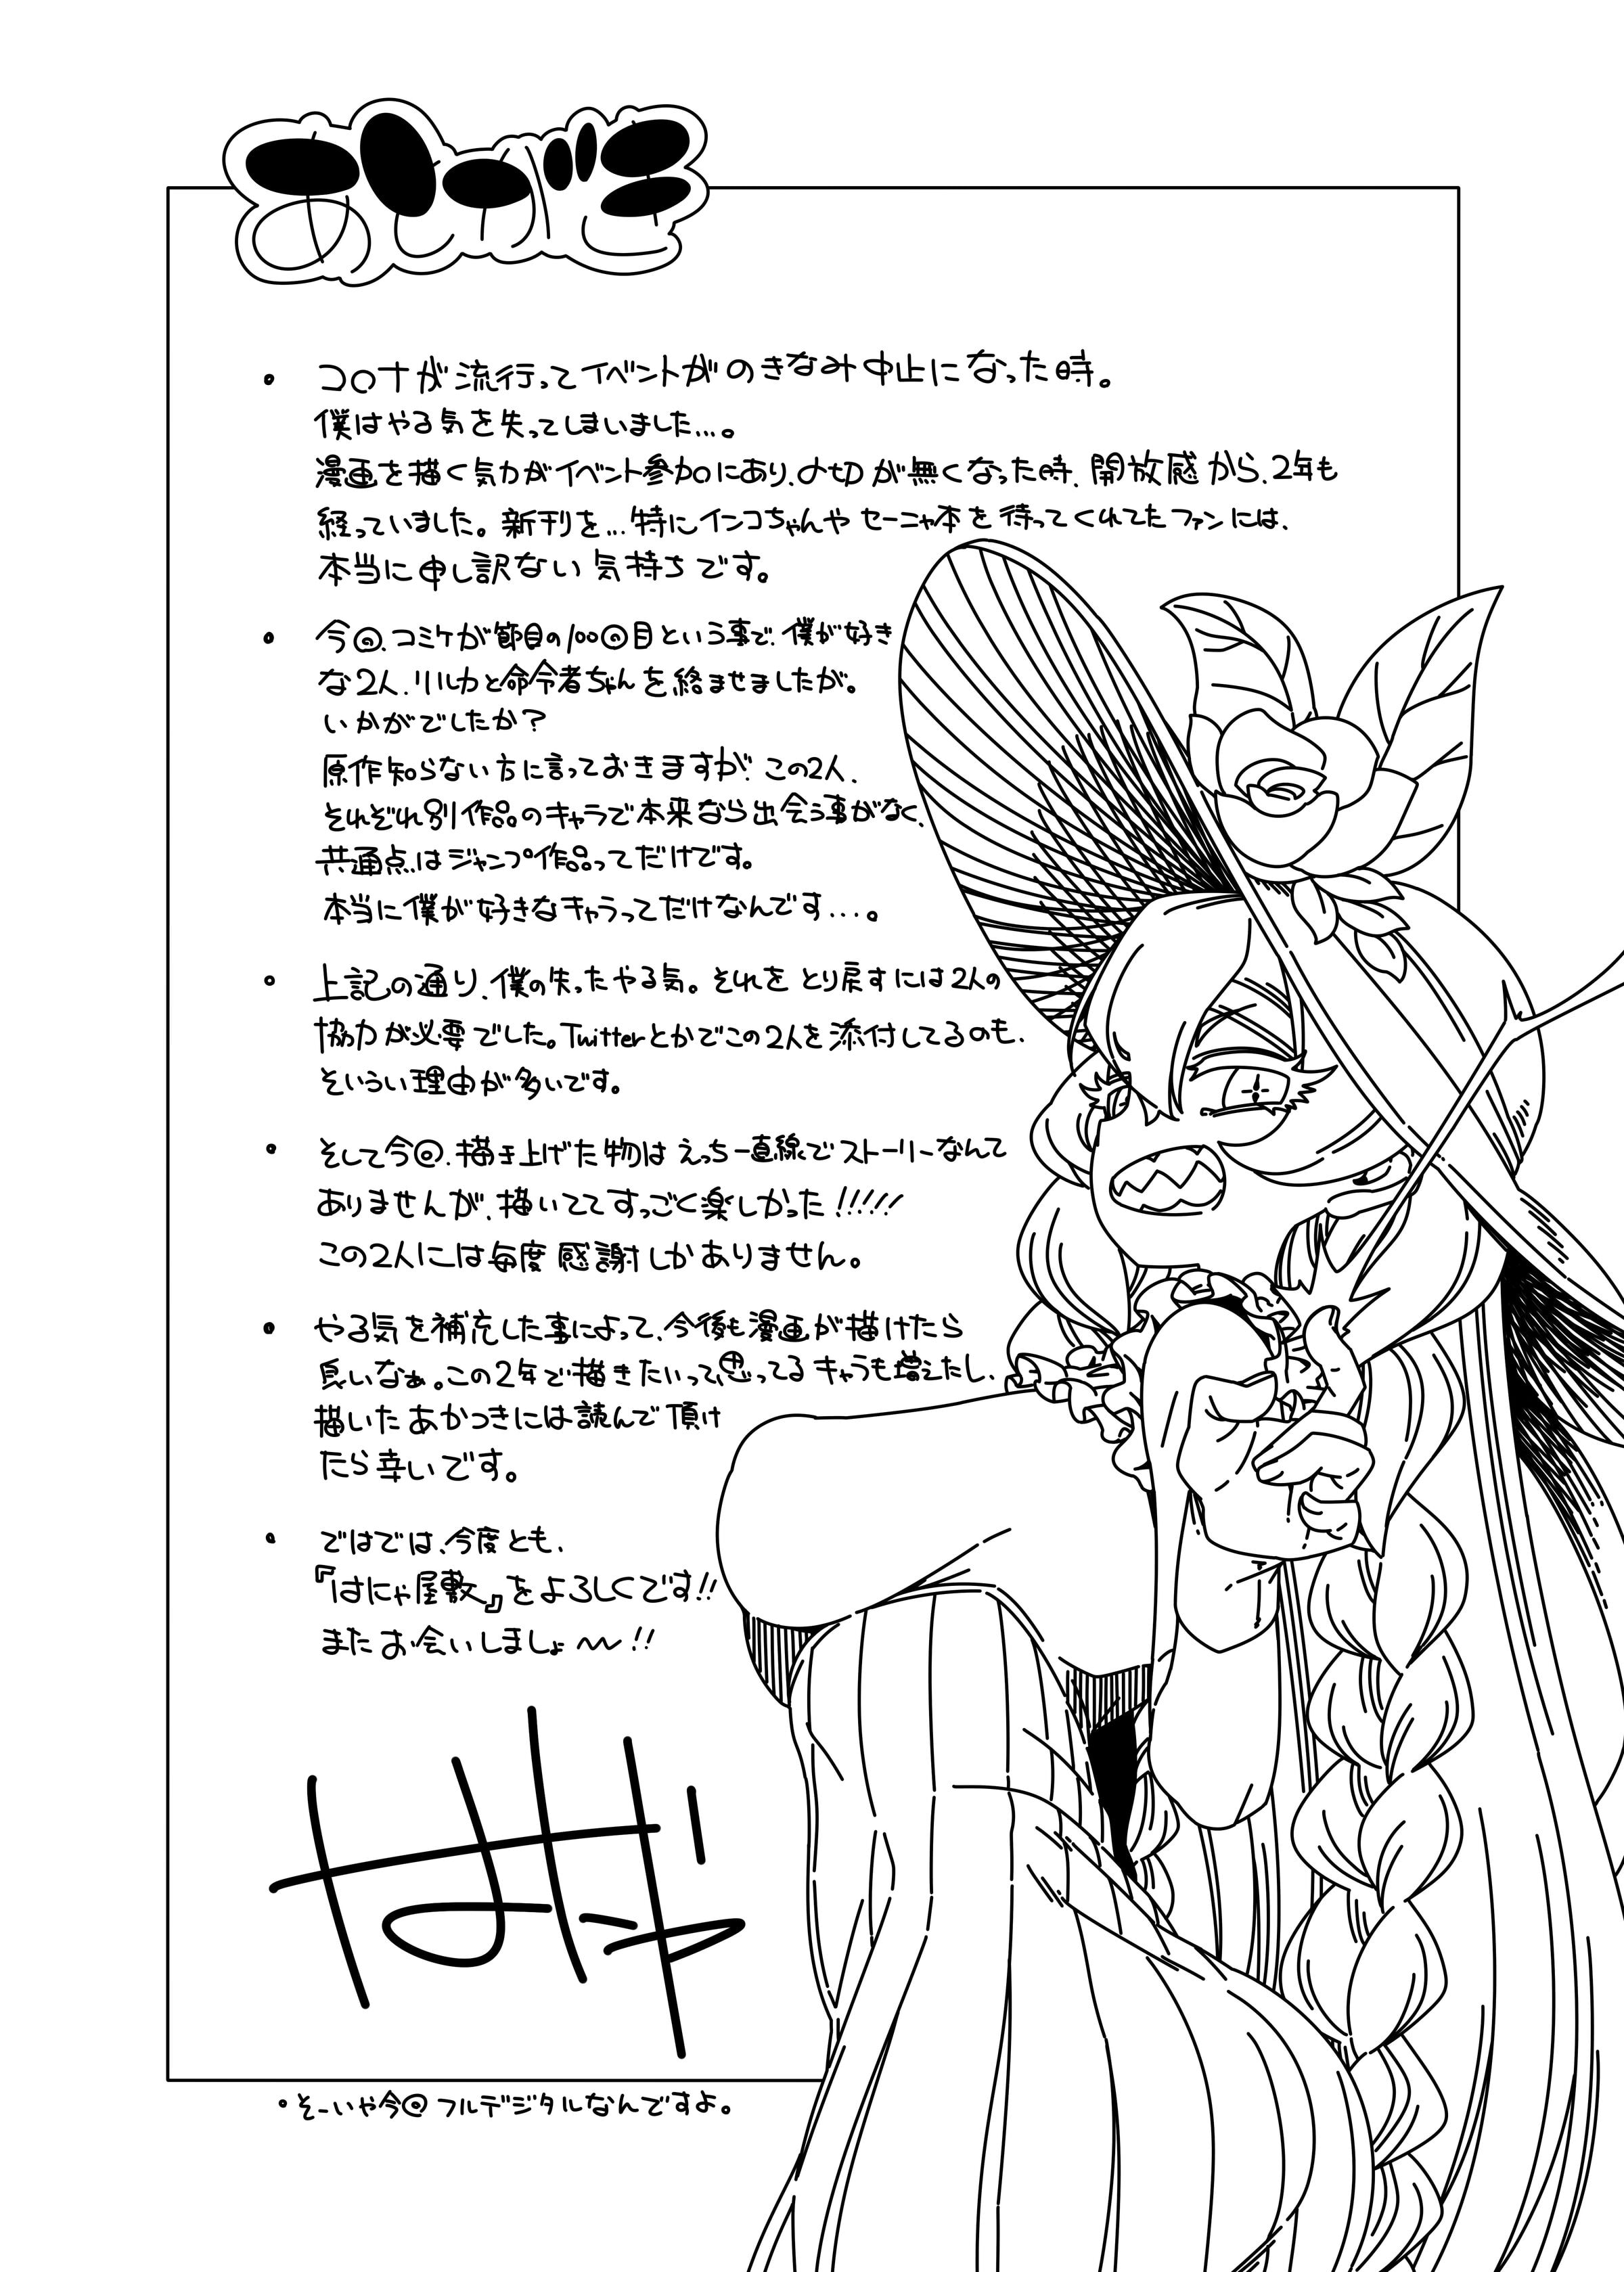 あとがき
・コロナが流行ってイベントがのきなみ中止になった時。
僕はやる気を失ってしまいました…。
漫画を描く気力がイベント参加にあり、〆切が無くなった時、開放感から、2年も
経っていました。新刊を…特にインコちゃんやセーニャ本を待ってくれてたファンには、
本当に申し訳ない気持ちです。
・今回、コミケが節目の100回目という事で、僕が好き
な2人、リルカと命令者ちゃんを絡ませましたが。
いかがでしたか?
原作知らない方に言っておきますが、この2人、
それぞれ別作品のキャラで本来なら出会う事がなく、
共通点はジャンプ作品ってだけです。
本当に僕が好きなキャラってだけなんです…。
・上記の通り、僕の失ったやる気。それをとり戻すには2人の
協力が必要でした。Twitterとかでこの2人を添付してるのも、
そいうい理由が多いです。
・そして今回、描き上げた物はえっち一直線でストーリーなんて
ありませんが、描いててすっごく楽しかった!!!!!
この2人には毎度感謝しかありません。
・やる気を補充した事によって、今後も漫画が描けたら
良いなぁ。この2年で描きたいって思ってるキャラも増えたし、
描いたあかつきには読んで頂け
たら幸いです。
・ではでは、今度とも、
『はにゃ屋敷』をよろしくです!!
またお会いしましょ〜〜!!
・そーいや今回フルデジタルなんですよ。